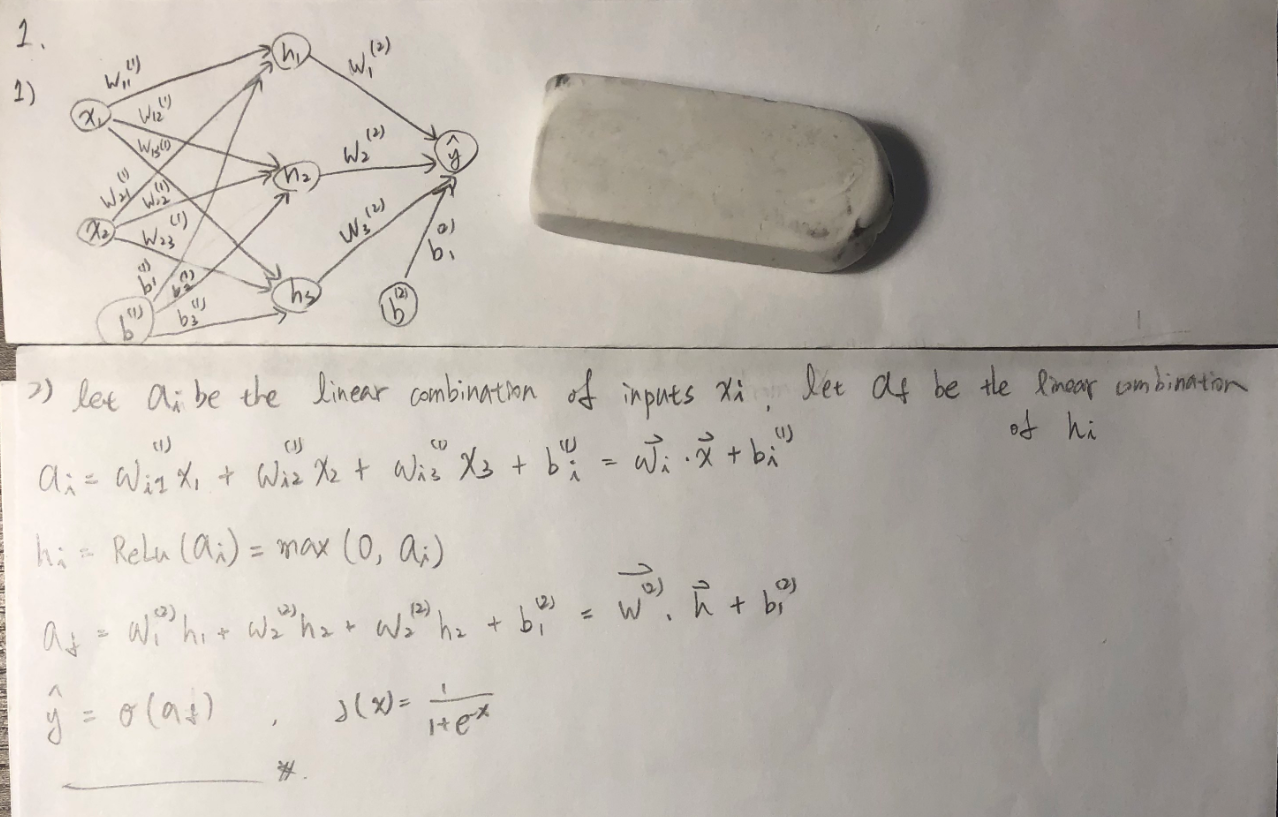 1.
1)
x₁
x₂
b⁽¹⁾
W₁₁⁽¹⁾
W₁₂⁽¹⁾
W₁₃⁽¹⁾
W₂₁⁽¹⁾
W₂₂⁽¹⁾
W₂₃⁽¹⁾
b₁⁽¹⁾
b₂⁽¹⁾
b₃⁽¹⁾
h₁
h₂
h₃
W₁⁽²⁾
W₂⁽²⁾
W₃⁽²⁾
ŷ
b₁⁽²⁾
b⁽²⁾
2) let aᵢ be the linear combination of inputs xᵢ, let a_f be the linear combination
of hᵢ
aᵢ = wᵢ₁⁽¹⁾ x₁ + wᵢ₂⁽¹⁾ x₂ + wᵢ₃⁽¹⁾ x₃ + bᵢ⁽¹⁾ = w⃗ᵢ · x⃗ + bᵢ⁽¹⁾
hᵢ = ReLu (aᵢ) = max (0, aᵢ)
a_f = w₁⁽²⁾ h₁ + w₂⁽²⁾ h₂ + w₂⁽²⁾ h₂ + b₁⁽²⁾ = w⃗⁽²⁾ · h⃗ + b₁⁽²⁾
ŷ = σ(a_f) , s(x) = 1/(1+e⁻ˣ)
#.